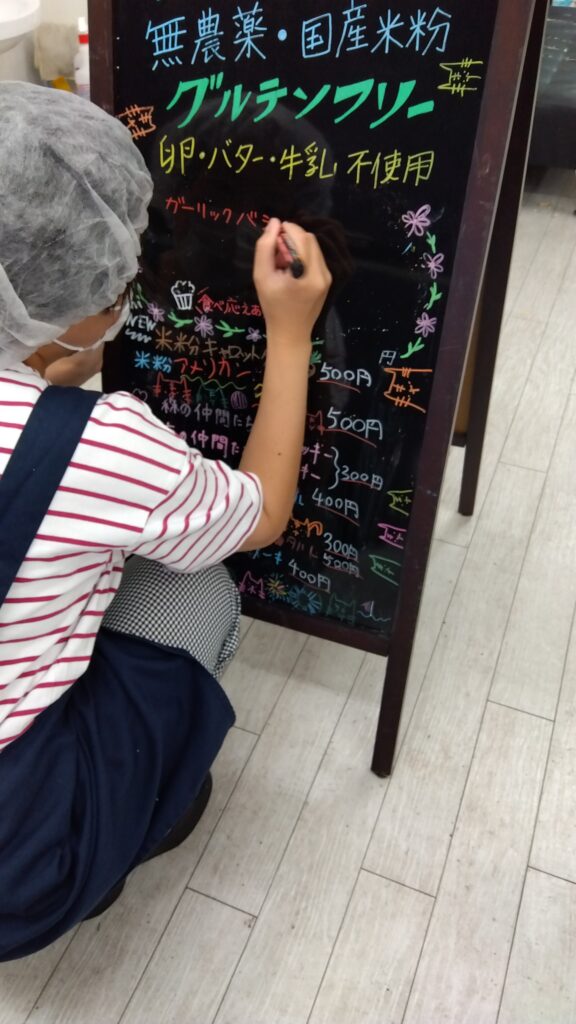 無農薬・国産米粉
グルテンフリー
卵・バター・牛乳 不使用
ガーリックバジ
食べ応えあ
NEW
米粉キャロット
円
米粉アメリカン 500円
森の仲間た 500円
の仲間た ッキー
キー
300円
ル 400円
300円
500円
ーキ 400円